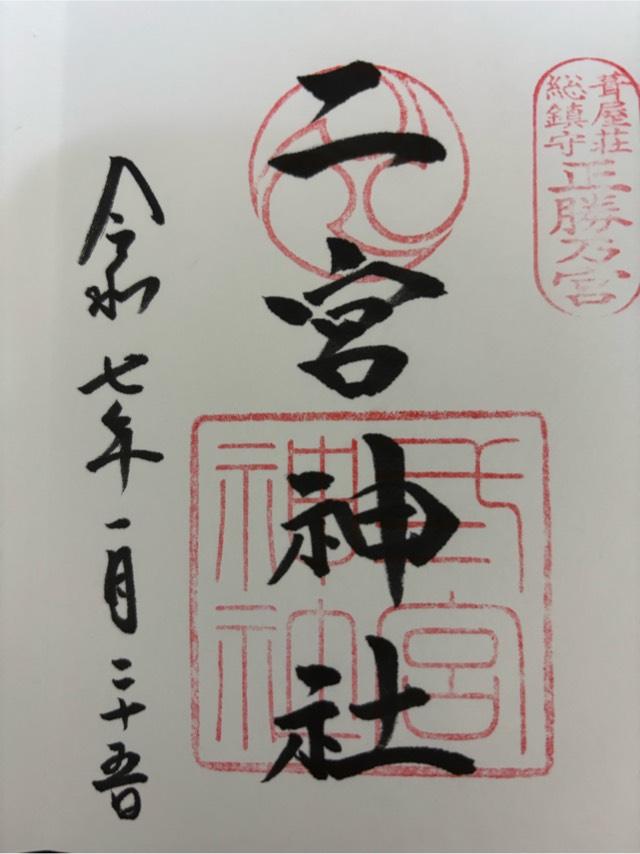 葺屋荘
総鎮守
正勝乃宮
二宮神社
令和七年一月二十五日